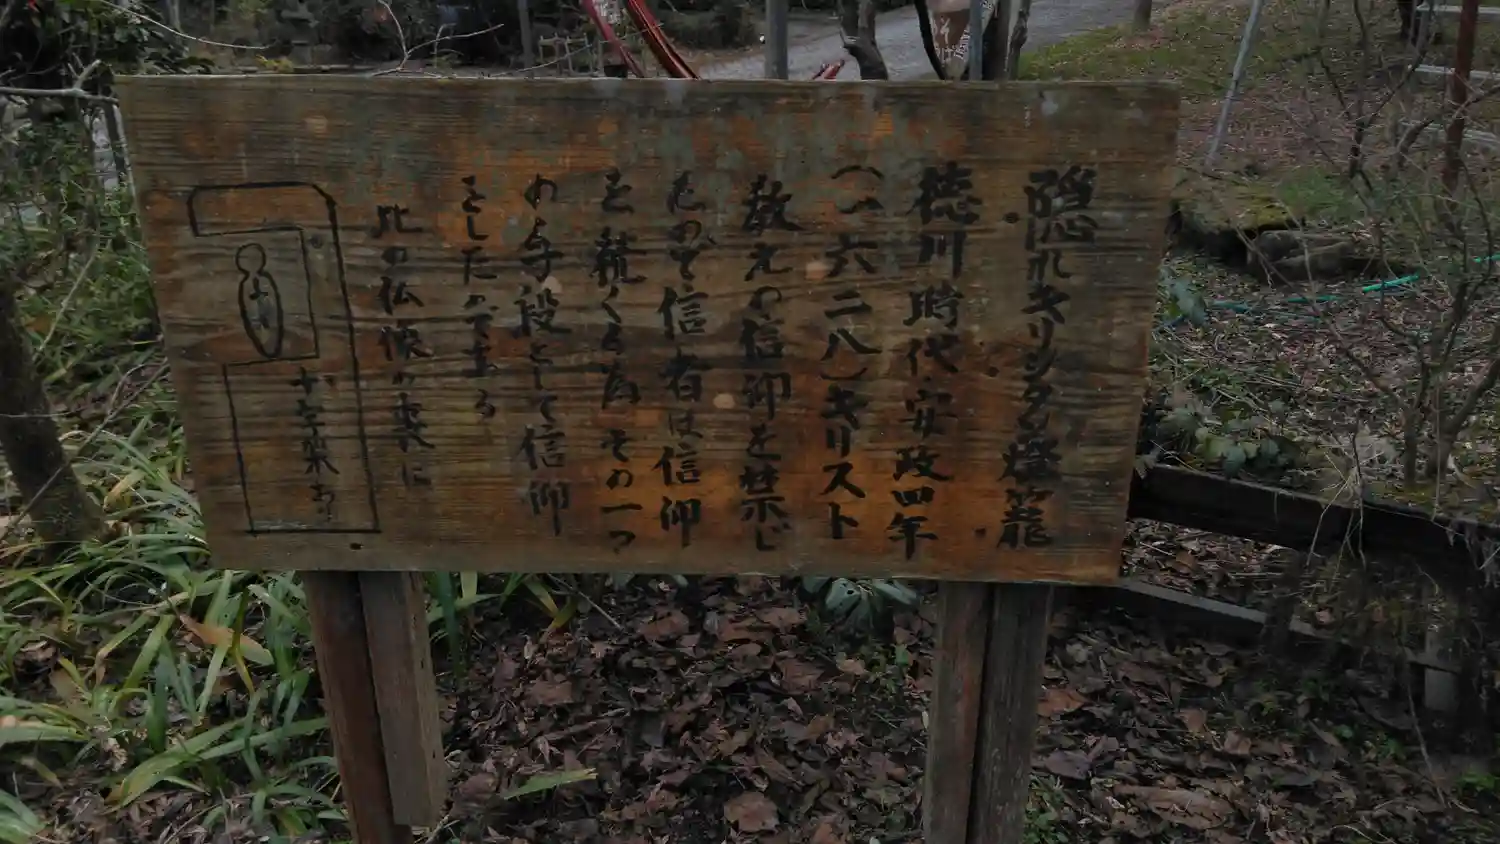 隠れキリシタン燈篭
徳川時代・安政四年
(一六二八)キリスト
教えの信仰を禁じ
たので信者は信仰
を続くる為その一つ
の手段として信仰
をしたのである
此の仏像の裏に
十字架あり